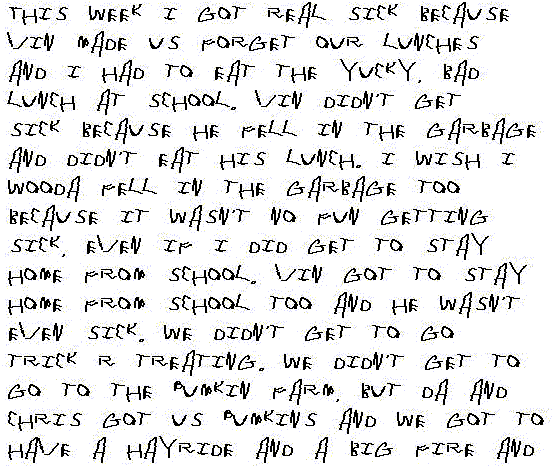 THIS WEEK I GOT REAL SICK BECAUSE
VIN MADE US FORGET OUR LUNCHES
AND I HAD TO EAT THE YUCKY, BAD
LUNCH AT SCHOOL. VIN DIDN'T GET
SICK BECAUSE HE FELL IN THE GARBAGE
AND DIDN'T EAT HIS LUNCH. I WISH I
WOODA FELL IN THE GARBAGE TOO
BECAUSE IT WASN'T NO FUN GETTING
SICK, EVEN IF I DID GET TO STAY
HOME FROM SCHOOL. VIN GOT TO STAY
HOME FROM SCHOOL TOO AND HE WASN'T
EVEN SICK. WE DIDN'T GET TO GO
TRICK R TREATING. WE DIDN'T GET TO
GO TO THE PUMKIN FARM, BUT DA AND
CHRIS GOT US PUMKINS AND WE GOT TO
HAVE A HAYRIDE AND A BIG FIRE AND